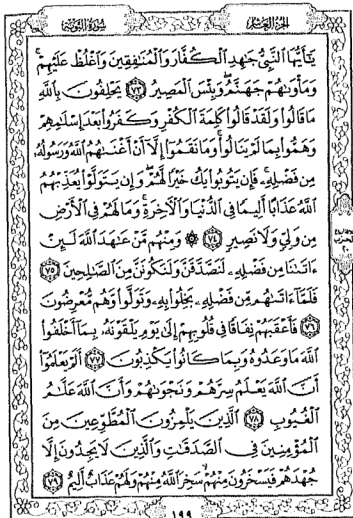 الجزء العاشر سورة التوبة
يَٰٓأَيُّهَا ٱلنَّبِىُّ جَٰهِدِ ٱلْكُفَّارَ وَٱلْمُنَٰفِقِينَ وَٱغْلُظْ عَلَيْهِمْ ۚ
وَمَأْوَىٰهُمْ جَهَنَّمُ ۖ وَبِئْسَ ٱلْمَصِيرُ ٧٣ يَحْلِفُونَ بِٱللَّهِ
مَا قَالُوا۟ وَلَقَدْ قَالُوا۟ كَلِمَةَ ٱلْكُفْرِ وَكَفَرُوا۟ بَعْدَ إِسْلَٰمِهِمْ
وَهَمُّوا۟ بِمَا لَمْ يَنَالُوا۟ ۚ وَمَا نَقَمُوٓا۟ إِلَّآ أَنْ أَغْنَىٰهُمُ ٱللَّهُ وَرَسُولُهُۥ
مِن فَضْلِهِۦ ۚ فَإِن يَتُوبُوا۟ يَكُ خَيْرًا لَّهُمْ ۖ وَإِن يَتَوَلَّوْا۟ يُعَذِّبْهُمُ
ٱللَّهُ عَذَابًا أَلِيمًا فِى ٱلدُّنْيَا وَٱلْءَاخِرَةِ ۚ وَمَا لَهُمْ فِى ٱلْأَرْضِ
مِن وَلِىٍّ وَلَا نَصِيرٍ ٧٤ ۞ وَمِنْهُم مَّنْ عَٰهَدَ ٱللَّهَ لَئِنْ
ءَاتَىٰنَا مِن فَضْلِهِۦ لَنَصَّدَّقَنَّ وَلَنَكُونَنَّ مِنَ ٱلصَّٰلِحِينَ ٧٥
فَلَمَّآ ءَاتَىٰهُم مِّن فَضْلِهِۦ بَخِلُوا۟ بِهِۦ وَتَوَلَّوا۟ وَّهُم مُّعْرِضُونَ
٧٦ فَأَعْقَبَهُمْ نِفَاقًا فِى قُلُوبِهِمْ إِلَىٰ يَوْمِ يَلْقَوْنَهُۥ بِمَآ أَخْلَفُوا۟
ٱللَّهَ مَا وَعَدُوهُ وَبِمَا كَانُوا۟ يَكْذِبُونَ ٧٧ أَلَمْ يَعْلَمُوٓا۟
أَنَّ ٱللَّهَ يَعْلَمُ سِرَّهُمْ وَنَجْوَىٰهُمْ وَأَنَّ ٱللَّهَ عَلَّٰمُ
ٱلْغُيُوبِ ٧٨ ٱلَّذِينَ يَلْمِزُونَ ٱلْمُطَّوِّعِينَ مِنَ
ٱلْمُؤْمِنِينَ فِى ٱلصَّدَقَٰتِ وَٱلَّذِينَ لَا يَجِدُونَ إِلَّا
جُهْدَهُمْ فَيَسْخَرُونَ مِنْهُمْ ۙ سَخِرَ ٱللَّهُ مِنْهُمْ وَلَهُمْ عَذَابٌ أَلِيمٌ ٧٩
١٩٩